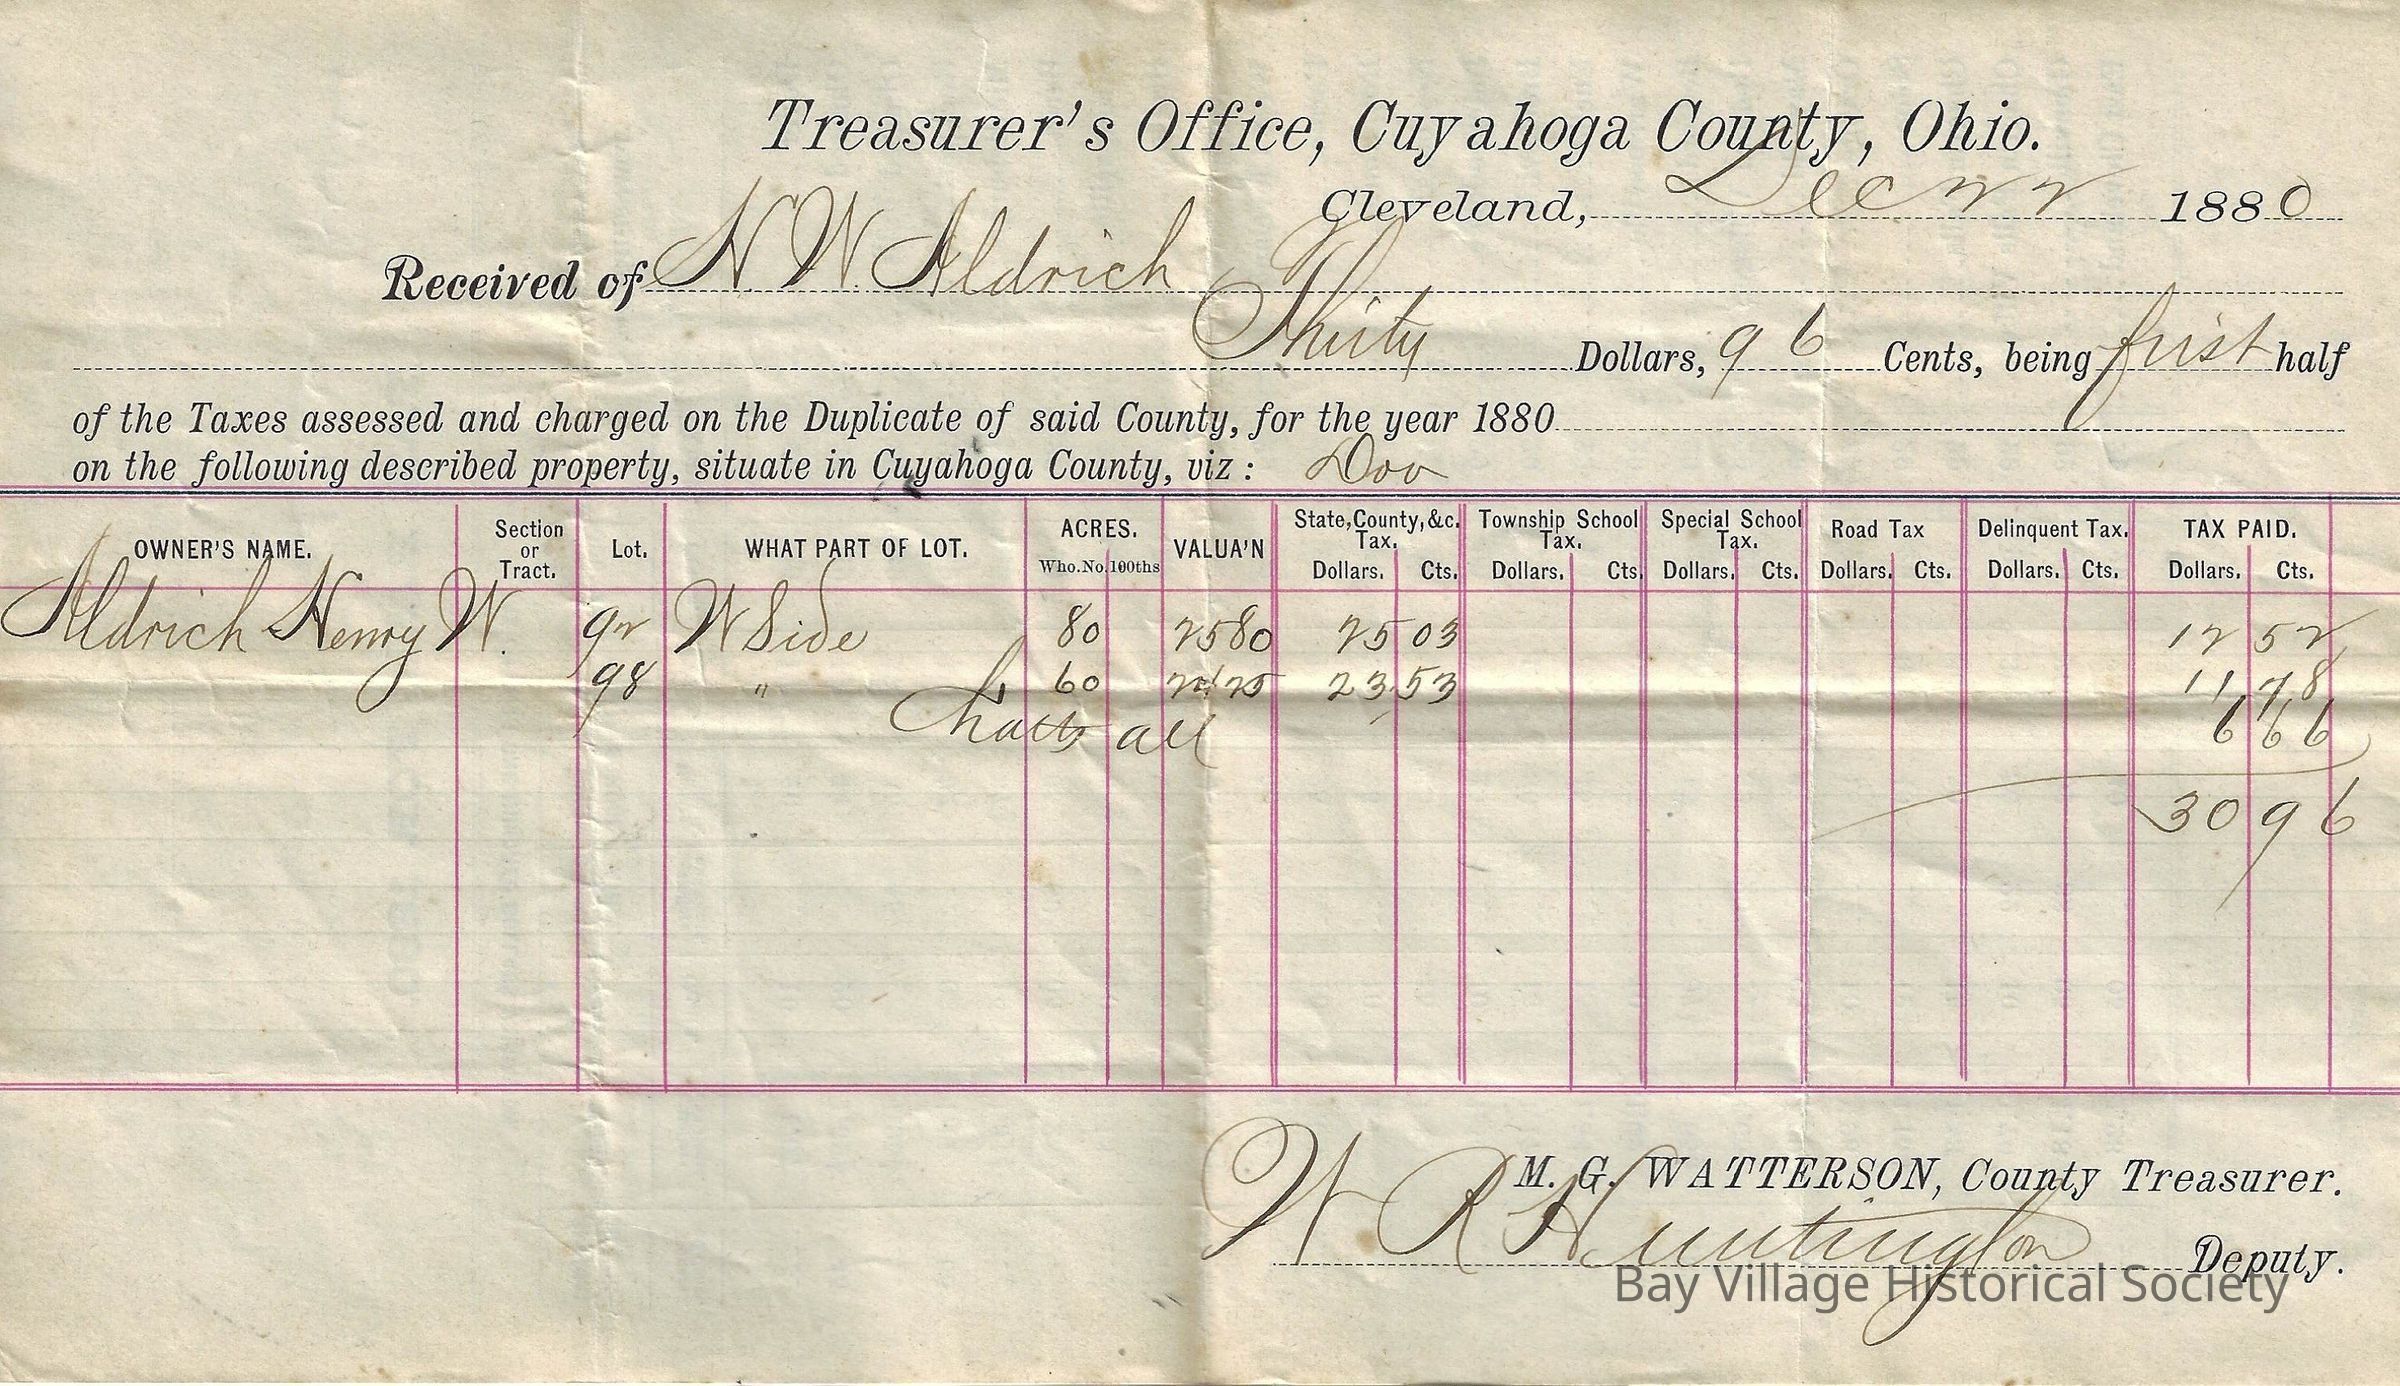 Treasurer's Office, Cuyahoga County, Ohio.
Cleveland, Dec 22 1880
Received of H W Aldrich
Thirty Dollars, 96 Cents, being first half
of the Taxes assessed and charged on the Duplicate of said County, for the year 1880
on the following described property, situate in Cuyahoga County, viz: Dov
OWNER'S NAME. Section or Tract. Lot. WHAT PART OF LOT. ACRES. Who.No. 100ths VALUA'N State, County, &c. Tax. Dollars. Cts. Township School Tax. Dollars. Cts. Special School Tax. Dollars. Cts. Road Tax Dollars. Cts. Delinquent Tax. Dollars. Cts. TAX PAID. Dollars. Cts.
Aldrich Henry W. 92 W Side 80 2580 25 03 12 52
98 " 60 2425 23 53 11 78
Chatts all 6 66
30 96
M. G. WATTERSON, County Treasurer.
W R Huntington Deputy.
Bay Village Historical Society